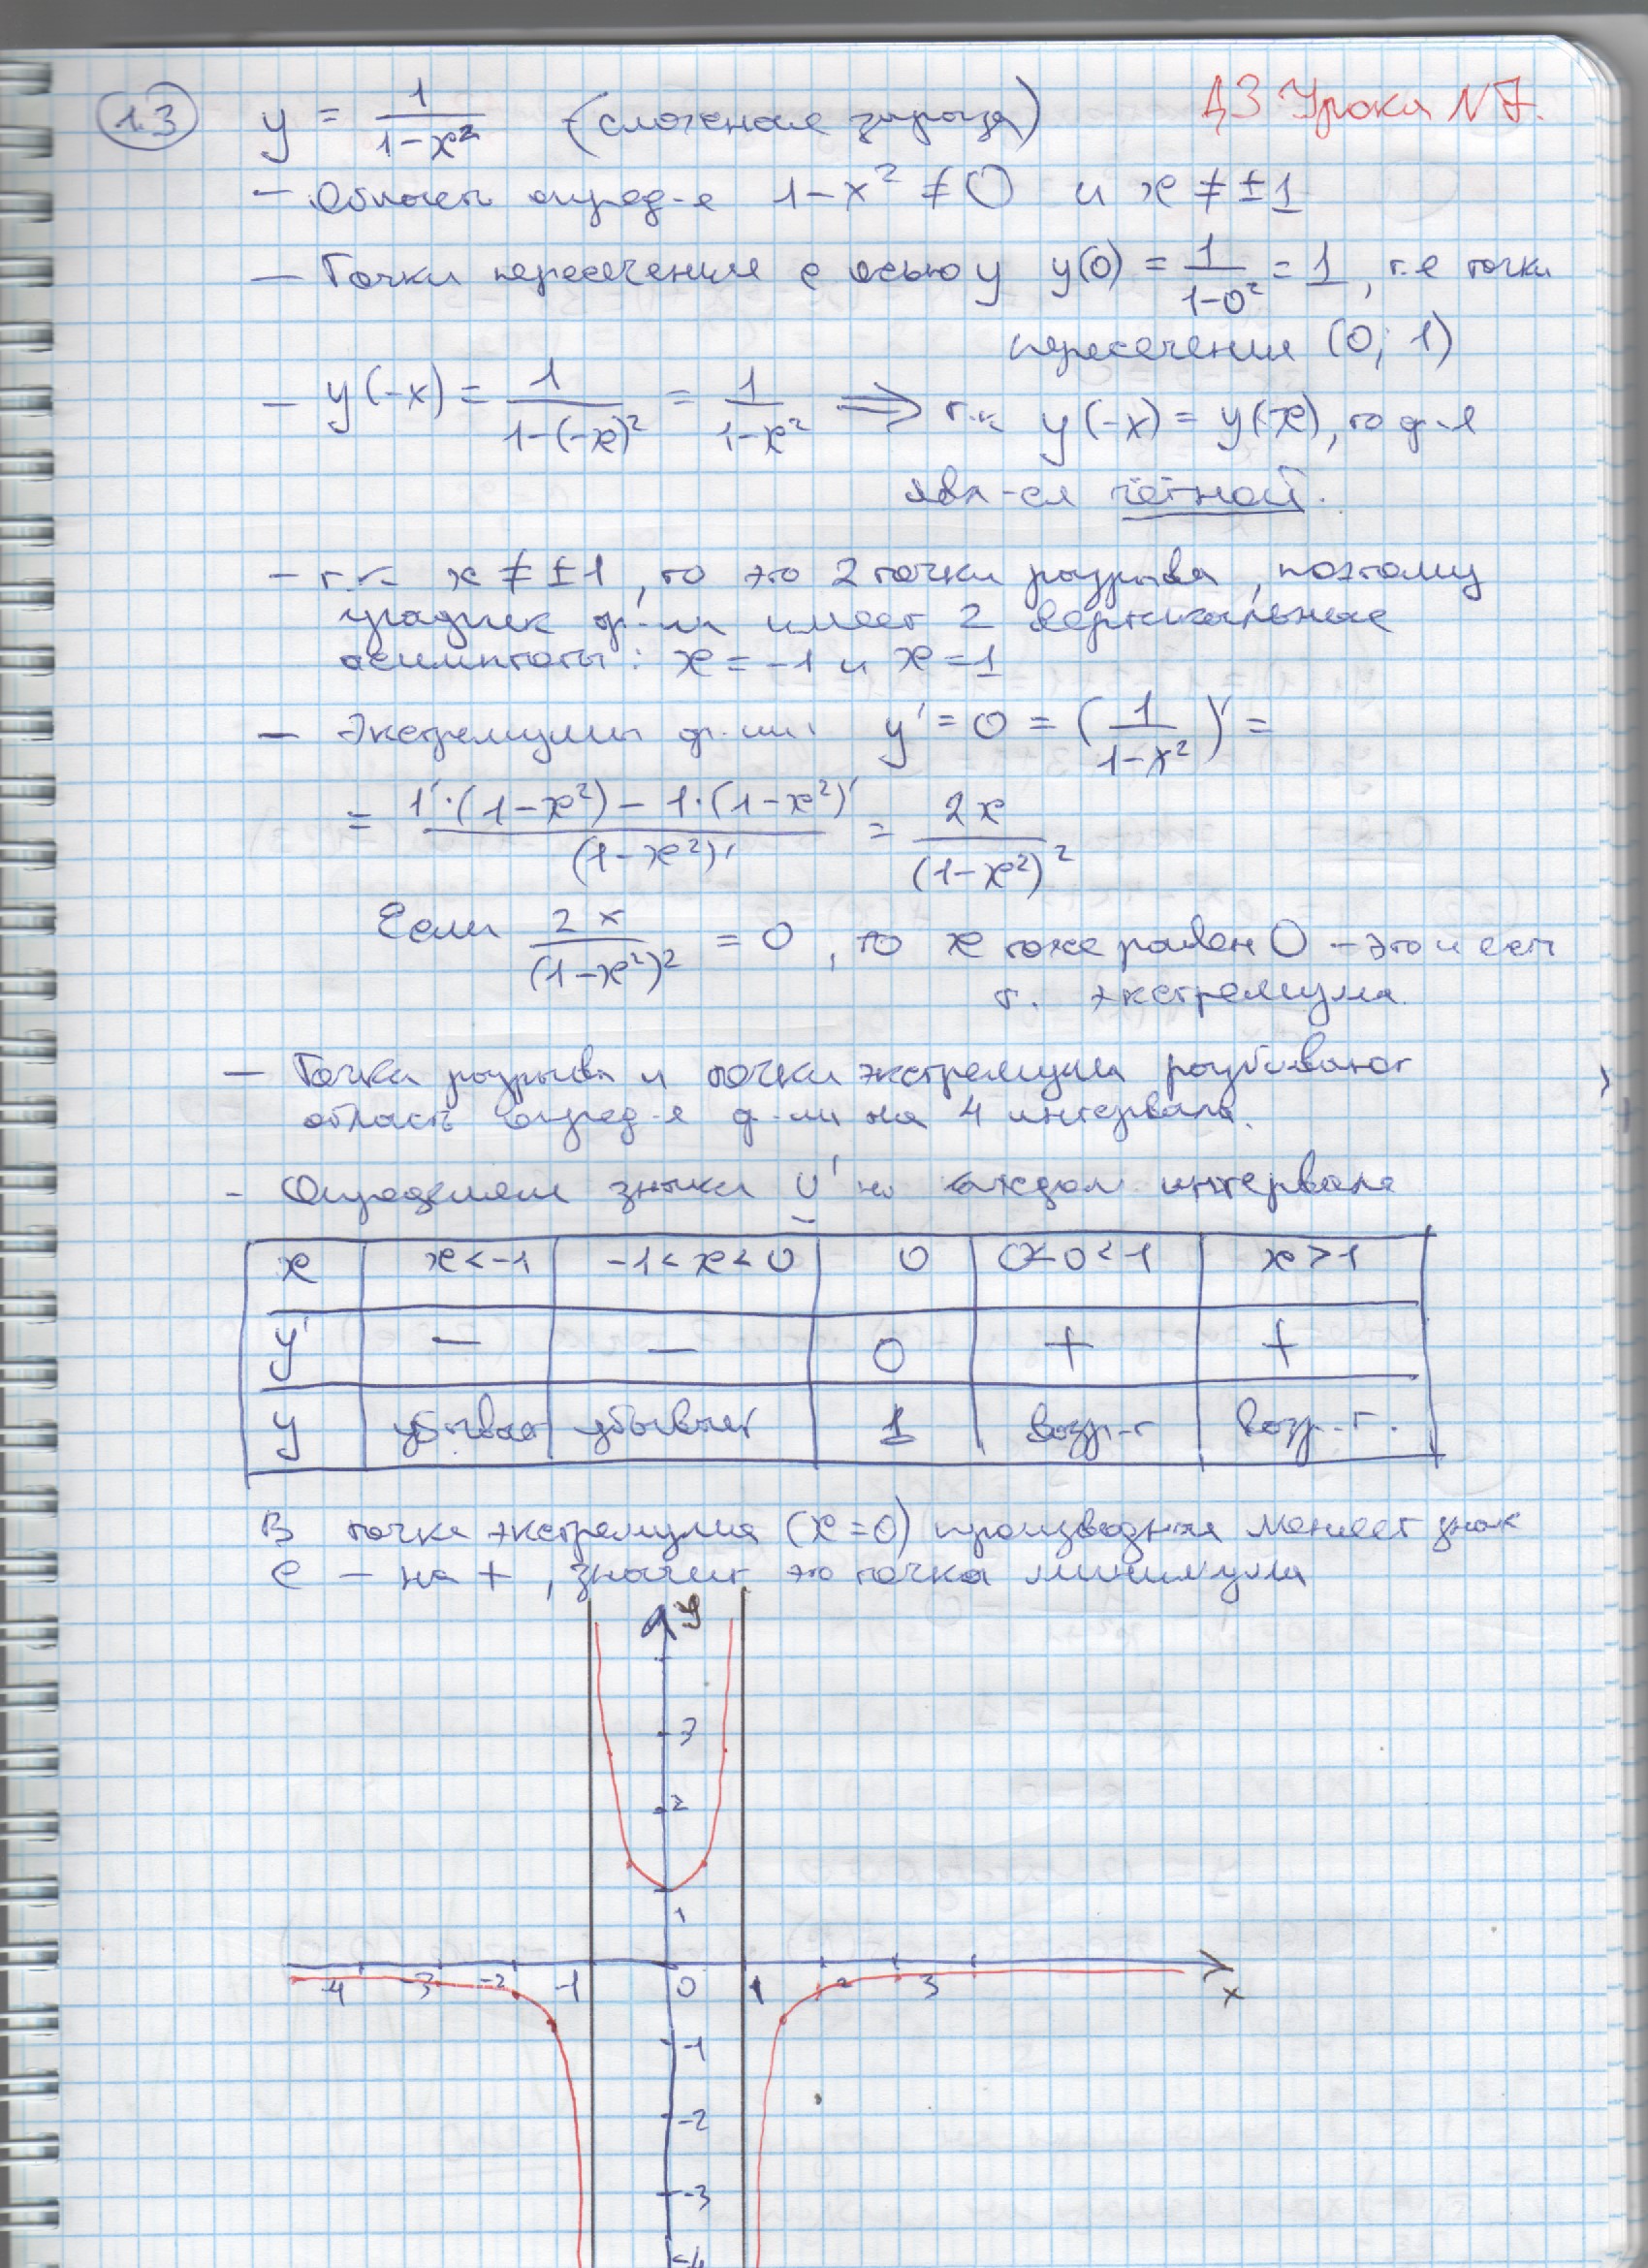 1.3 y = 1/(1-x²) (сложная гипербола) ДЗ Урока N7.
- Область опред-я 1-x² ≠ 0 и x ≠ ±1
- Точки пересечения с осью y y(0) = 1/(1-0²) = 1, т.е точки
пересечения (0; 1)
- y(-x) = 1/(1-(-x)²) = 1/(1-x²) ⇒ т.к. y(-x) = y(x), то ф-я
явл-ся чётной.
- т.к. x ≠ ±1, то это 2 точки разрыва, поэтому
график ф-ии имеет 2 вертикальные
асимптоты: x = -1 и x = 1
- Экстремумы ф-ии: y' = 0 = (1/(1-x²))' =
= (1'·(1-x²) - 1·(1-x²)')/(1-x²)' = 2x/(1-x²)²
Если 2x/(1-x²)² = 0, то x тоже равен 0 - это и есть
т. экстремума.
- Точка разрыва и точки экстремума разбивают
область опред-я ф-ии на 4 интервала.
- Определяем знаки y' на каждом интервале
x x<-1 -1<x<0 0 0<0<1 x>1
y' - - 0 + +
y убывает убывает 1 возр-т возр-т.
В точке экстремума (x=0) производная меняет знак
с - на +, значит это точка минимума
y
3
2
1
-4 -3 -2 -1 0 1 2 3 x
-1
-2
-3
-4